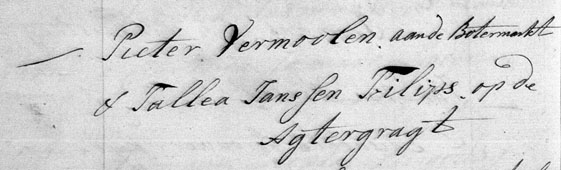 — Pieter Vermoolen. aan de Botermarkt
& Tallea Janssen Filips. op de
Agtergragt